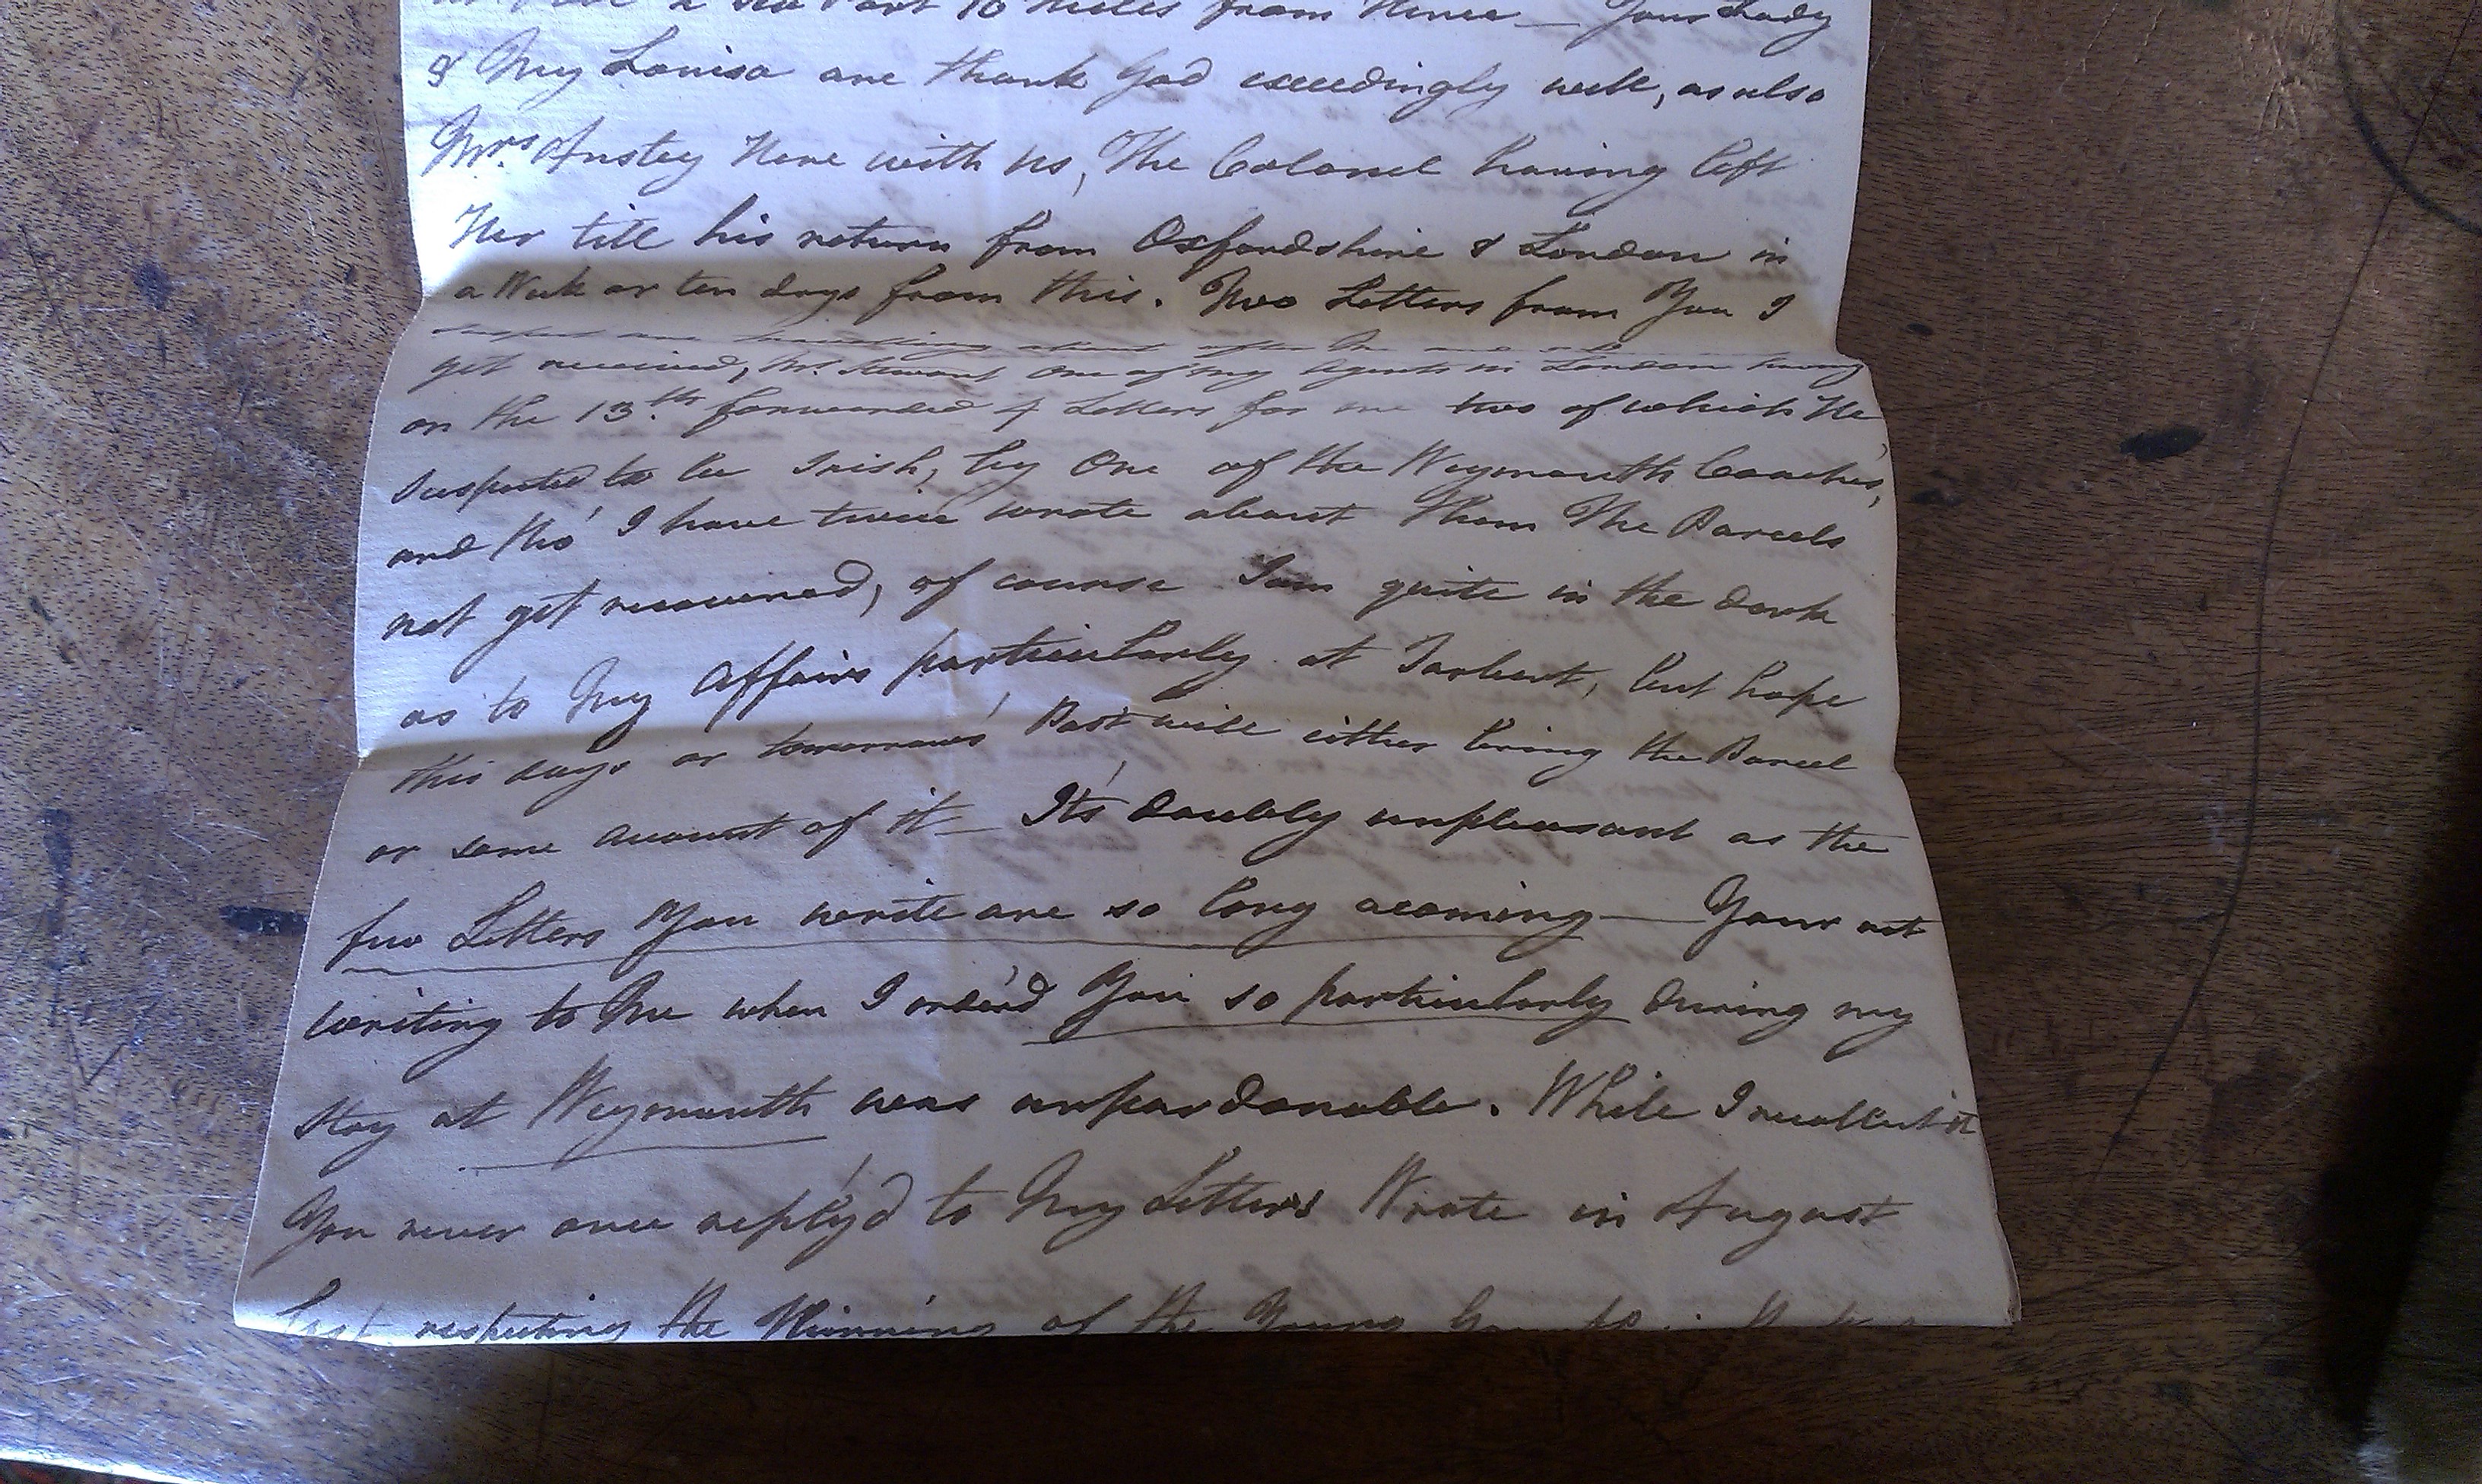 a Sea Port 10 Miles from Hence — Your Lady
& My Louisa are thank God exceedingly well, as also
Mrs. Anstey Here with us, The Colonel having left
Her till his return from Oxfordshire & London in
a Week or ten days from this. Two Letters from You I
suspect are travelling about after Me and
yet received, Mr. Stewart One of my Agents in London having
on the 13th forwarded 4 Letters for me two of which He
suspected to be Irish, by One of the Weymouth Coaches,
and tho' I have twice wrote about Them The Parcels
not yet recovered, of course I am quite in the dark
as to My Affairs particularly at Tarbert, but hope
this days or tomorrows' Post will either bring the Parcel
or some account of it — It's doubly unpleasant as the
few Letters You write are so long acoming — Your not
writing to Me when I order'd You so particularly during my
stay at Weymouth was unpardonable. While I recollect it
You never once reply'd to My Letters Wrote in August
last respecting the Thinning of the Young